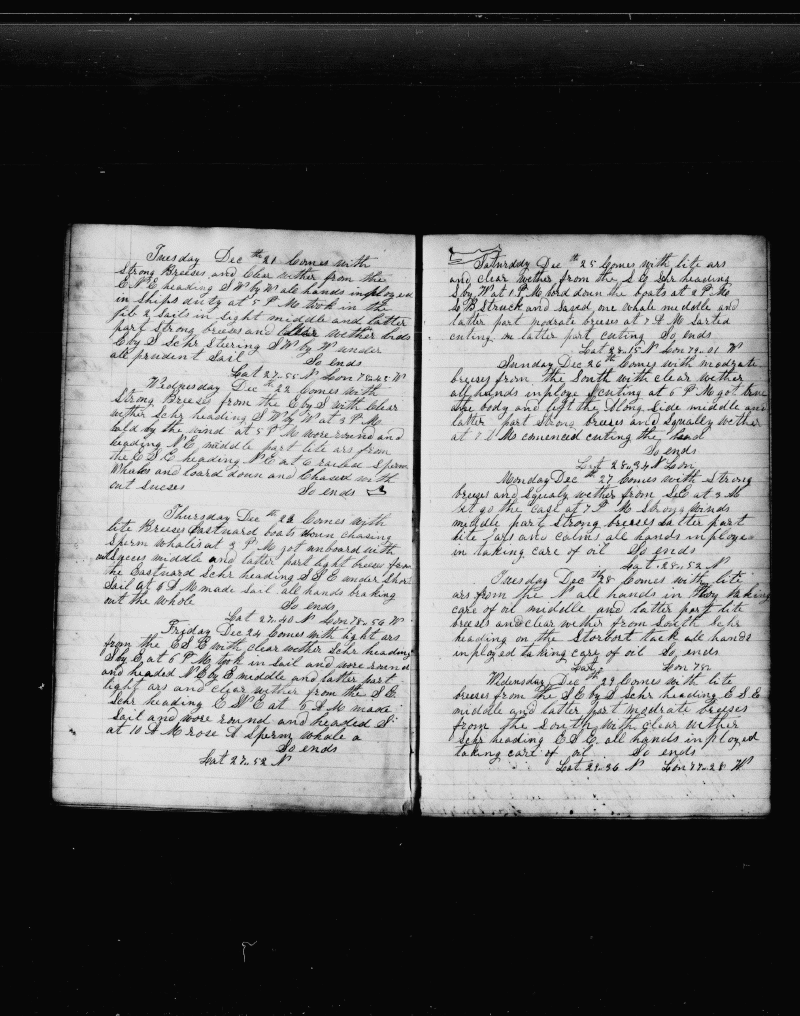 Tuesday Dec th 21 Comes with
Strong Breeses and Clear wether from the
E N E heading S W by W all hands inployed
in Ships duty at 5 P M took in the
jib 2 Sails in light middle and latter
part Strong breeses and Clear wether winds
E by S Schr Stering S W by W under
all prudent Sail So ends
Lat 27..55 N Lon 78..45 W
Wednesday Dec th 22 Comes with
Strong Breeses from the E by S with Clear
wether Schr heading S W by W at 3 P M
by the wind at 5 P M wore round and
heading N E middle part lite ars from
the E S E heading N E at 6 raised Sperm
Whales and loard down and Chased with
out Sucses So ends
Thursday Dec th 23 Comes with
lite Breeses Eastward boats down chasing
Sperm whales at 3 P M got onboard with
out Sucses middle and latter part light breeses from
the Eastward Schr heading S S E under Short
Sail at 6 A M made Sail all hands braking
out the whole So ends
Lat 27..40 N Lon 78..54 W
Friday Dec 24 Comes with light ars
from the E S E with clear wether Schr heading
S by E at 6 P M took in Sail and wore round
and headed N E by E middle and latter part
light ars and clear wether from the S E
Schr heading E N E at 6 A M made
Sail and wore round and headed S
at 10 A M rose A Sperm whale a
So ends
Lat 27..52 N
Saturday Dec th 25 Comes with lite ars
and clear wether from the S E Schr heading
S by W at 1 P M loard down the boats at 2 P M
L B Struck and Saved one whale meddle and
latter part modrate breeses at 7 A M Sarted
cuting in latter part cuting So ends
Lat 28..15 N Lon 79..01 W
Sunday Dec 26 th Comes with modrate
breeses from the South with clear wether
all hands inploye cuting at 6 P M got
the body and left the Along Side middle and
latter part Strong breeses and Squally wether
at 7 A M comenced cuting the head
So ends
Lat 28..34 N Lon
Monday Dec th 27 Comes with Strong
breeses and Squaly wether from S E at 3 M
let go the case at 7 P M Strong winds
middle part Strong breeses Latter part
lite ars and calms all hands inployed
in taking care of oil So ends
Lat 28..52 N
Tuesday Dec th 28 Comes with lite
ars from the N all hands in thery taking
care of oil middle and latter part lite
breeses and clear wether from South Schr
heading on the Storbort tack all hands
inployed taking care of oil So ends
Lat Lon 78
Wedensday Dec th 29 Comes with lite
breeses from the S E by S Schr heading E S E
middle and latter part modrate breeses
from the South with clear wether
Schr heading E S E all hands inployed
taking care of oil So ends
Lat 28..36 N Lon 77..28 W